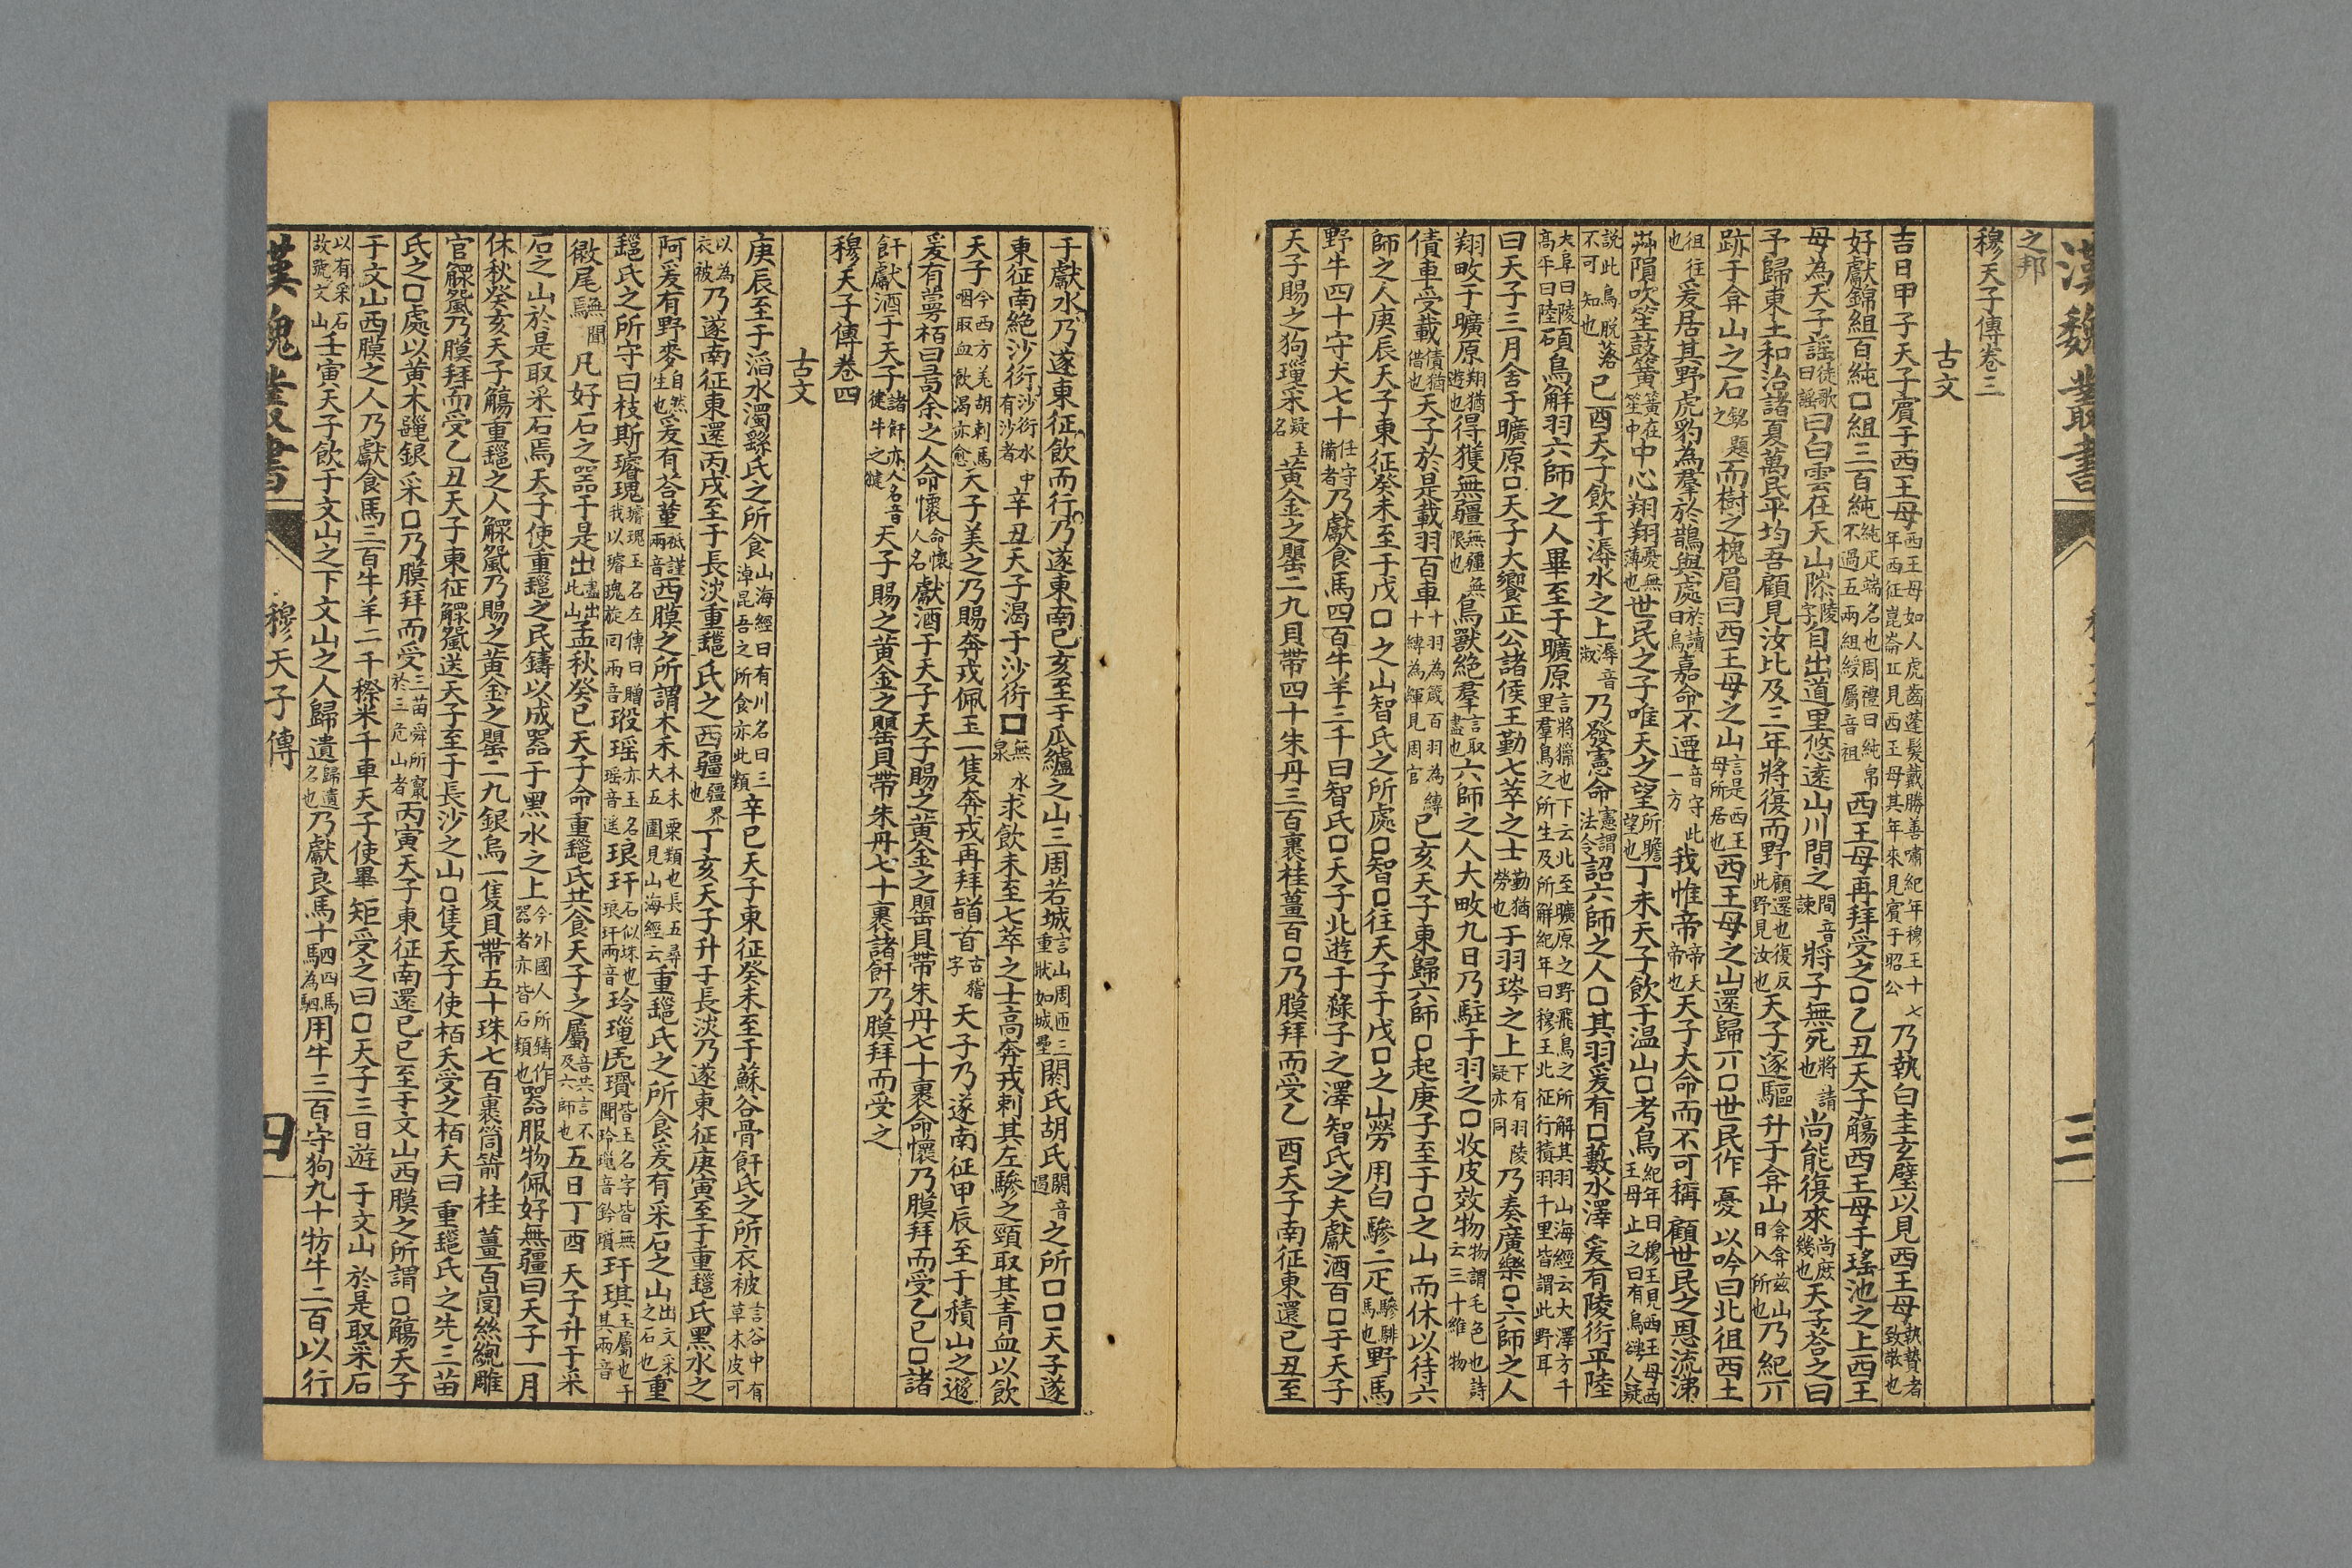 漢魏叢書
三
之邦
穆天子傳卷三
古文
吉日甲子天子賓于西王母西王母如人虎齒蓬髮戴勝善嘯紀年穆王十七年西征崑崙丘見西王母其年來見賓于昭公乃執白圭玄璧以見西王母執贄者致敬也
好獻錦組百純□組三百純純疋端名也周禮曰純帛不過五兩組綬屬音祖西王母再拜受之□乙丑天子觴西王母于瑤池之上西王
母為天子謠徒歌曰謠曰白雲在天山𨻶陵字自出道里悠遠山川間之間音諫將子無死將請也尚能復來尚庶幾也天子荅之曰
予歸東土和治諸夏萬民平均吾顧見汝比及三年將復而野顧還也復反此野見汝也天子遂驅升于弇山弇弇兹山日入所也乃紀丌
跡于弇山之石銘題之而樹之槐眉曰西王母之山言是西王母所居也西王母之山還歸丌□世民作憂以吟曰北徂西土
徂往也爰居其野虎豹為羣於鵲與處於讀曰烏嘉命不遷音守此一方我惟帝帝天帝也天子大命而不可稱顧世民之恩流涕
芔隕吹笙鼓簧簧在笙中中心翔翔憂無薄也世民之子唯天之望所瞻望也丁未天子飲于溫山□考鳥紀年曰穆王見西王母西王母止之曰有鳥䳭人疑
說此鳥脱落不可知也己酉天子飲于溽水之上溽音淑乃發憲命憲謂法令詔六師之人□其羽爰有□藪水澤爰有陵衍平陸
大阜曰陵高平曰陸碩鳥解羽六師之人畢至于曠原言將獵也下云北至曠原之野飛鳥之所解其羽山海經云大澤方千里羣鳥之所生及所解紀年曰穆王北征行積羽千里皆謂此野耳
曰天子三月舍于曠原□天子大饗正公諸侯王勤七萃之士勤猶勞也于羽琌之上下有羽陵疑亦同乃奏廣樂□六師之人
翔畋于曠原翔猶遊也得獲無疆無疆無限也鳥獸絕羣言取盡也六師之人大畋九日乃駐于羽之□收皮效物物謂毛色也詩云三十維物
債車受載債猶借也天子於是載羽百車十羽為箴百羽為縛十縛為緷見周官己亥天子東歸六師□起庚子至于□之山而休以待六
師之人庚辰天子東征癸未至于戊□之山智氏之所處□智□往天子于戊□之山勞用白驂二疋驂騑馬也野馬
野牛四十守犬七十任守備者乃獻食馬四百牛羊三千曰智氏□天子北遊于䚄子之澤智氏之夫獻酒百□于天子
天子賜之狗璱采疑玉名黃金之罌二九貝帶四十朱丹三百裹桂薑百□乃膜拜而受乙酉天子南征東還己丑至
于獻水乃遂東征飲而行乃遂東南己亥至于瓜纑之山三周若城言山周匝三重狀如城壘閼氏胡氏閼音遏之所□□天子遂
東征南絕沙衍沙衍水中有沙者辛丑天子渴于沙衍□無水泉求飲未至七萃之士高奔戎刺其左驂之頸取其青血以飲
天子今西方羌胡刺馬咽取血飲渴亦愈天子美之乃賜奔戎佩玉一隻奔戎再拜𩒨首古稽字天子乃遂南征甲辰至于積山之邊
爰有蔓栢曰𠷎余之人命懷命懷人名獻酒于天子天子賜之黃金之罌貝帶朱丹七十裹命懷乃膜拜而受乙巳□諸
飦獻酒于天子諸飦亦人名音犍牛之犍天子賜之黃金之罌貝帶朱丹七十裹諸飦乃膜拜而受之
穆天子傳卷四
古文
庚辰至于滔水濁繇氏之所食山海經曰有川名曰三淖昆吾之所食亦此類辛巳天子東征癸未至于蘇谷骨飦氏之所衣被言谷中有草木皮可
以為衣被乃遂南征東還丙戌至于長淡重䣝氏之西疆疆界也丁亥天子升于長淡乃遂東征庚寅至于重䣝氏黑水之
阿爰有野麥自然生也爰有荅堇祗謹兩音西膜之所謂木禾木禾粟類也長五尋大五圍見山海經云重䣝氏之所食爰有采石之山出文采之石也重
䣝氏之所守曰枝斯璿瑰璿瑰玉名左傳曰贈我以璿瑰旋回兩音㻁瑤亦玉名瑤音遙琅玕石似珠也琅玕兩音玪㻲㻁瓄皆玉名字皆無聞玪㻲音鈐瓄玗琪玉屬也于其兩音
徽尾無聞凡好石之器于是出盡出此山孟秋癸巳天子命重䣝氏共食天子之屬音共言不及六師也五日丁酉天子升于采
石之山於是取采石焉天子使重䣝之民鑄以成器于黑水之上今外國人所鑄作器者亦皆石類也器服物佩好無疆曰天子一月
休秋癸亥天子觴重䣝之人鰥𩰬乃賜之黃金之罌二九銀烏一隻貝帶五十珠七百裹筒箭桂薑百崗絲緫雕
官鰥𩰬乃膜拜而受乙丑天子東征鰥𩰬送天子至于長沙之山□隻天子使栢夭受之栢夭曰重䣝氏之先三苗
氏之□處以黃木䥷銀采□乃膜拜而受三苗舜所竄於三危山者丙寅天子東征南還己巳至于文山西膜之所謂□觴天子
于文山西膜之人乃獻食馬三百牛羊二千穄米千車天子使畢矩受之曰□天子三日遊于文山於是取采石
以有采石故號文山壬寅天子飲于文山之下文山之人歸遺歸遺名也乃獻良馬十駟四馬為駟用牛三百守狗九十牥牛二百以行
漢魏叢書
穆天子傳
四